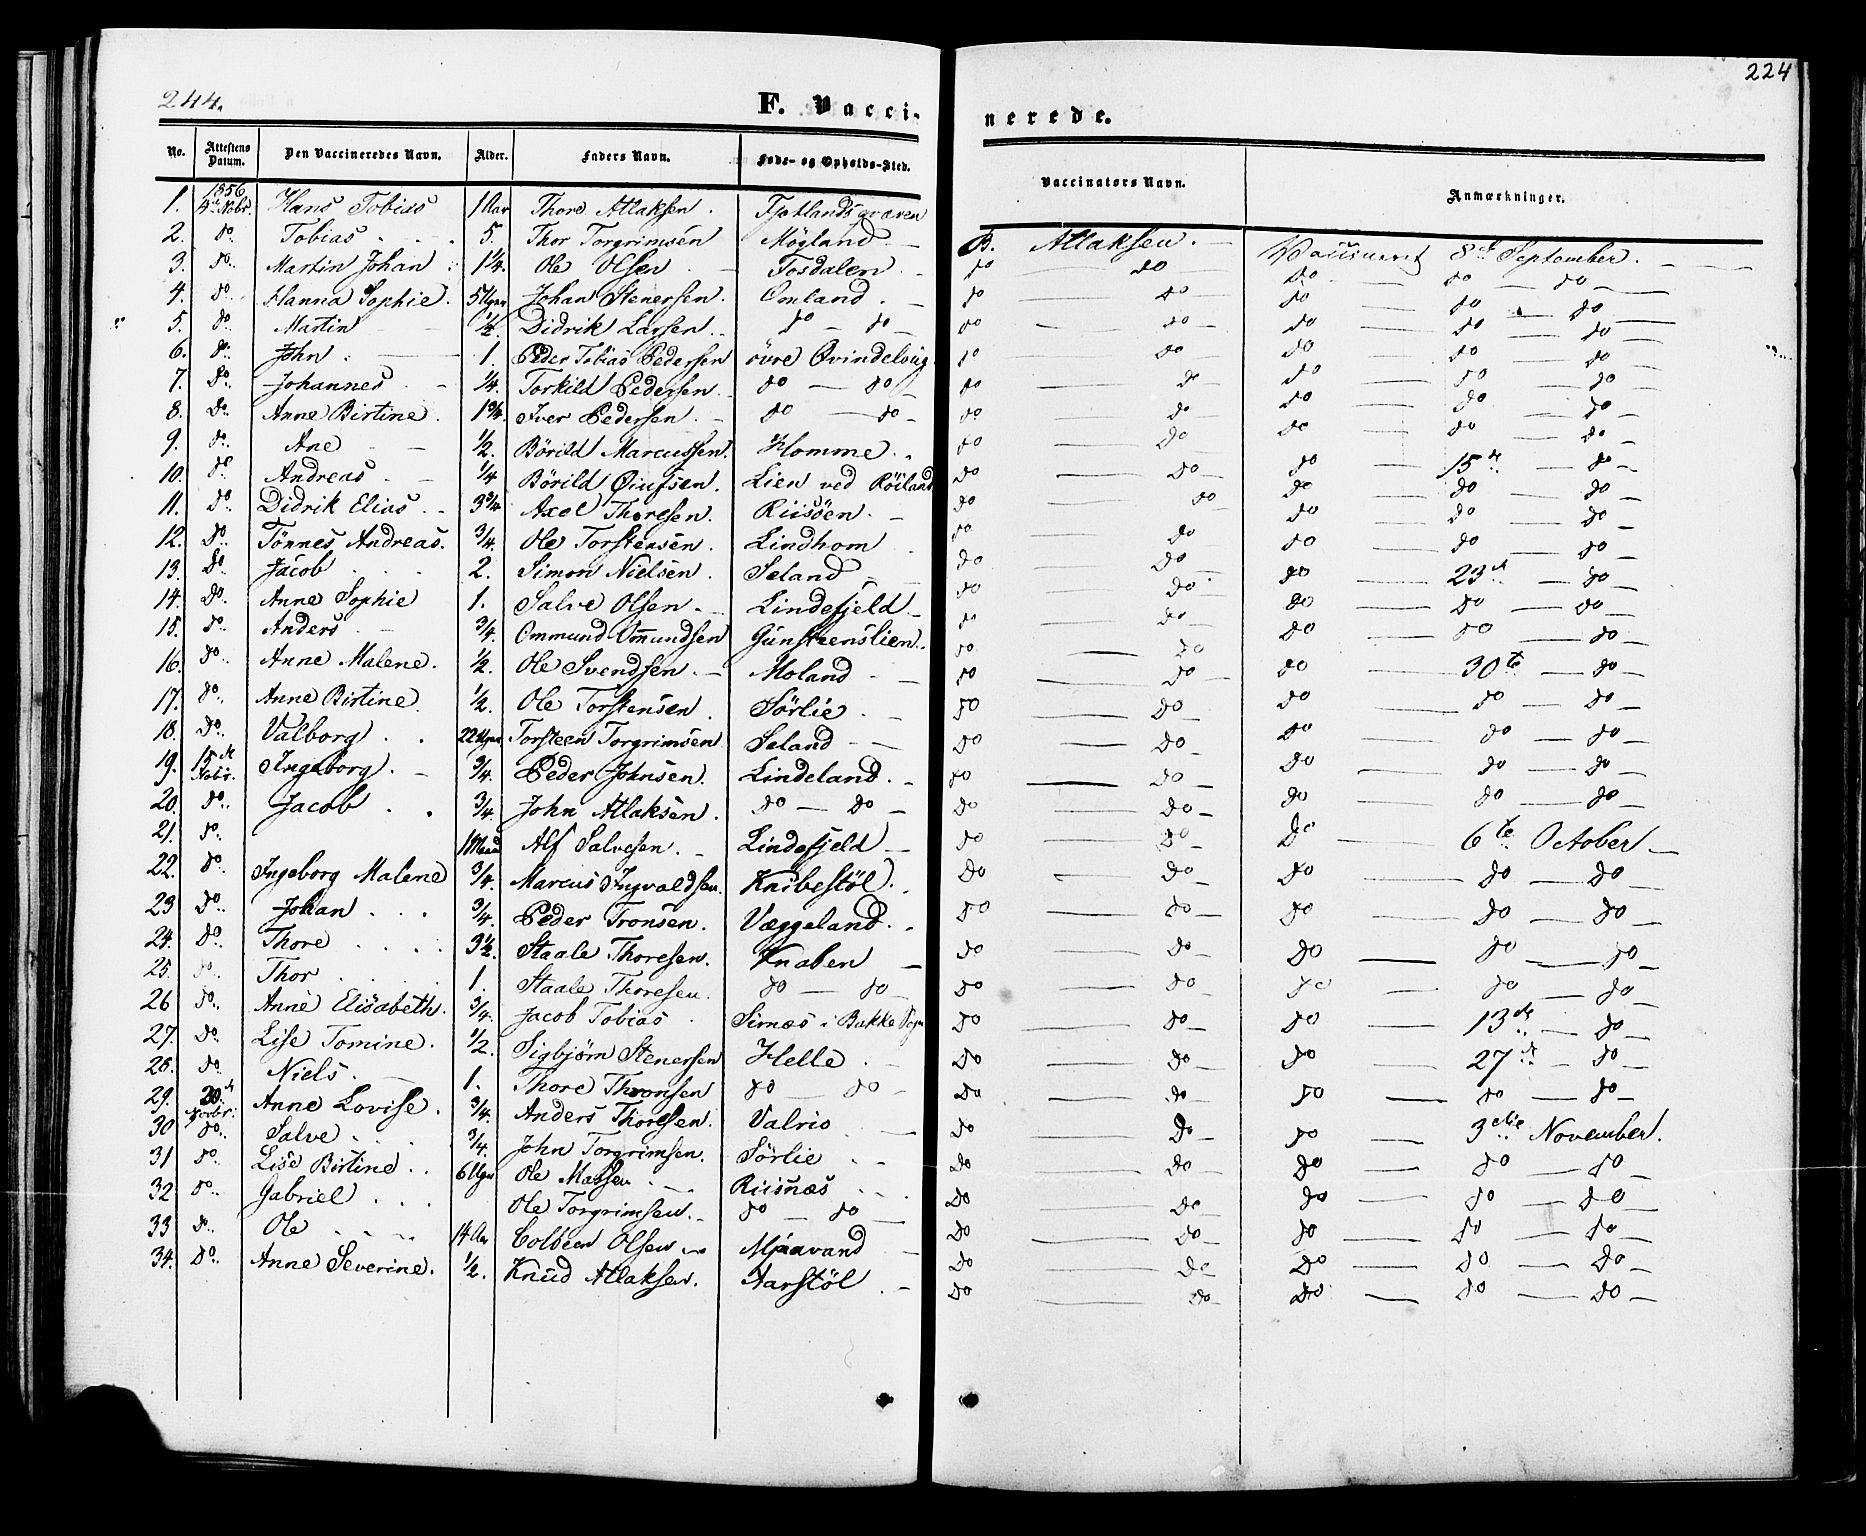 244.
F. Vacci-
nerede.
224
No. Attestens Datum. Den Vaccineredes Navn. Alder. Faders Navn. Føde- og Opholds-Sted. Vaccinators Navn. Anmærkninger.
1. 1856 4de Nobr. Hans Tobias 1 Aar Thore Atlaksen. Fjotlandsgraven B. Atlaksen. Vaccineret 8de September.
2. do. Tobias 5. Thor Torgrimsen Mögland do do do do do
3. do. Martin Johan 1 1/4. Ole Olsen Fosdalen do do do do do
4. do. Hanna Sophie. 5 Uger Johan Stenersen. Omland. do do do do do
5. do. Martin 1/2. Didrik Larsen. do do do do do do do
6. do. John. 1. Peder Tobias Pedersen övre Qvindelvug. do do do do do
7. do. Johannes 1/4. Torkild Pedersen. do do do do do do do
8. do. Anne Birtine. 1 3/4. Iver Pedersen do do do do do do do
9. do. Ane 1/2. Börild Marcussen. Homme. do do do 15de do
10. do Andreas 1/4 Börild Eiufsen. Lien ved Röiland do do do do do
11. do. Didrik Elias 3 3/4 Axel Thoresen. Riisöen do do do do do
12. do. Tönnes Andreas. 3/4. Ole Torstensen. Lindhom do do do do do
13. do. Jacob 2. Simon Nielsen. Seland do do do 23de do
14. do. Anne Sophie 1. Salve Olsen Lindefjeld do do do do do
15. do. Anders 3/4. Ommund Omundsen Gunsteenslien. do do do do do
16. do. Anne Malene. 1/2. Ole Svendsen. Moland do do do 30te do
17. do. Anne Birtine 1/2. Ole Torstensen. Sörlie. do do do do do
18. do. Valborg. 22 Uger Torsteen Torgrimsen Seland do do do do do
19. 15de Nobr. Ingeborg. 3/4. Peder Johnsen. Lindeland. do do do do do
20. do. Jacob. 3/4. John Atlaksen. do do do do do do do
21. do. 1 Maan Alf Salvesen. Lindefjeld do do do 6te October
22. do. Ingeborg Malene 3/4. Marcus Ingvaldsen. Knibestöl. do do do do do
23 do. Johan 3/4. Peder Tronsen. Væggeland. do do do do do
24. do. Thore 3 1/2. Staale Thoresen. Knaben do do do do do
25. do. Thor 1. Staale Thoresen. do do do do do do do
26 do. Anne Elisabeth. 3/4. Jacob Tobias Sirnæs i Bakke Sogn do do do 13de do
27. do. Lise Tomine. 1/2. Sigbjørn Stenersen Helle. do do do 27de do
28. do. Niels. 1. Thore Thronsen do do do do do do do
29. 20de Novbr. Anne Lovise. 3/4. Anders Thoresen. Valrio do do do 3die November.
30 do. Salve. 3/4. John Torgrimsen. Sörlie do do do do do
31 do. Lise Birtine. 6 Uger Ole Massen Riisnæs do do do do do
32 do. Gabriel Ole Torgrimsen. do do do do do do do
33 do. Ole 14 Aar Colbeen Olsen Mjaavand do do do do do
34. do. Anne Severine. 1/2. Knud Atlaksen. Aarstöl do do do do do